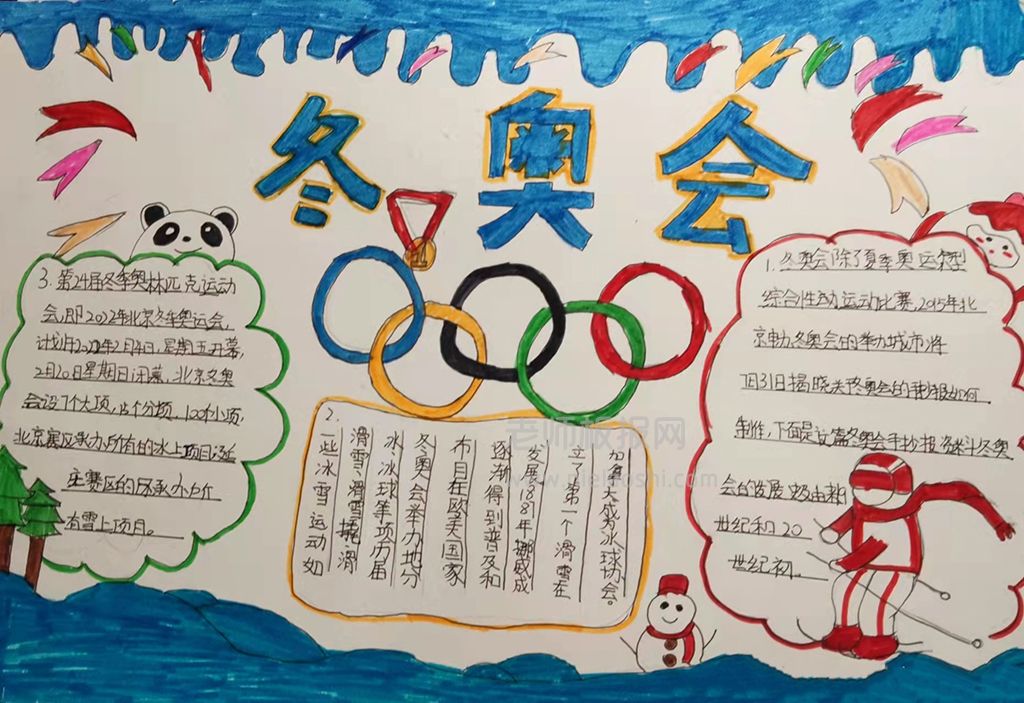 冬奥会
3. 第24届冬季奥林匹克运动
会,即2022年北京冬季奥运会,
计划于2022年2月4日,星期五开幕,
2月20日星期日闭幕,北京冬奥
会设7个大项,15个分项,100个小项,
北京赛区承办所有的水上项目延
庆赛区的
有雪上项目。
1. 冬奥会除了夏季奥运
综合性 运动比赛,2015年北
京申办冬奥会的举办城市将
7月31日揭晓关于冬奥会的手抄报如何
制作,下面是这篇冬奥会手抄报资料斗冬奥
会的发展
世纪和20
世纪初。
2.
一些冰雪运动如
滑雪、滑雪橇、滑
冰、冰球等项方届
冬奥会举办地分
布目在欧美国家
逐渐得到普及和
发展1881年挪威成
立了第一个滑雪在
加拿大成为冰球协会。
老师板报网
www.nielaoshi.com